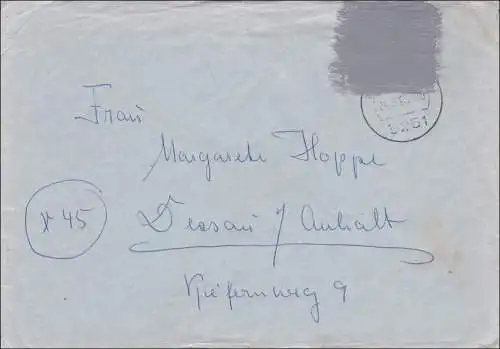 Frau
Margarete Hoppe
* 45
Dessau / Anhalt
Kiefernweg 9